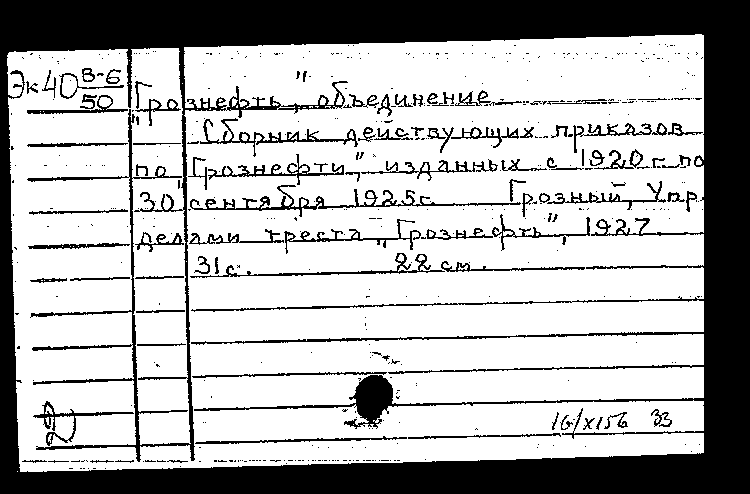 Эк40 В-6/50
"Грознефть", объединение.
Сборник действующих приказов
по "Грознефти", изданных с 1920 г. по
30 сентября 1925 г. Грозный, Упр.
делами треста "Грознефть", 1927.
31 с. 22 см.
16/X156 33